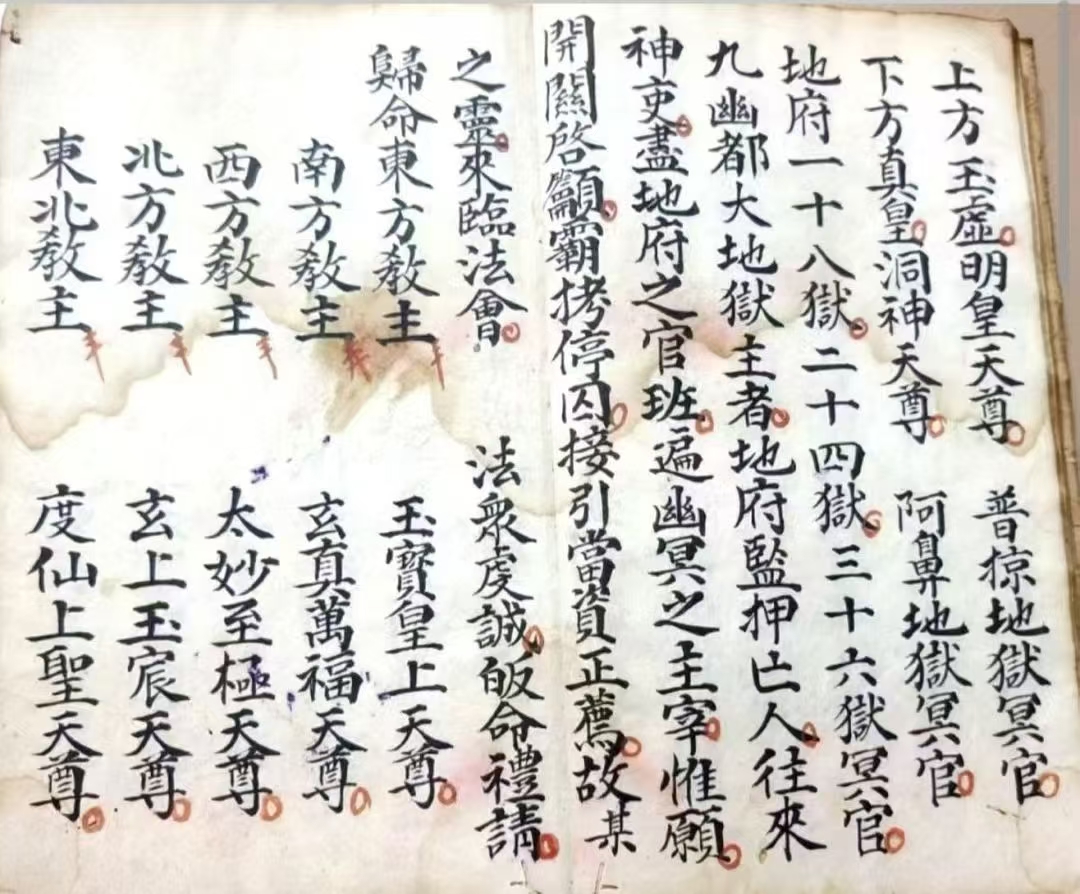 上方玉虛明皇天尊 普掠地獄冥官
下方真皇洞神天尊 阿鼻地獄冥官
地府一十八獄二十四獄三十六獄冥官
九幽都大地獄主者地府監押亡人往來
神吏盡地府之官班遍幽冥之主宰惟願
開關啓籲霸拷停囚接引當資正薦故某
之靈來臨法會 法眾虔誠皈命禮請
歸命東方教主 玉寶皇上天尊
南方教主 玄真萬福天尊
西方教主 太妙至極天尊
北方教主 玄上玉宸天尊
東北教主 度仙上聖天尊